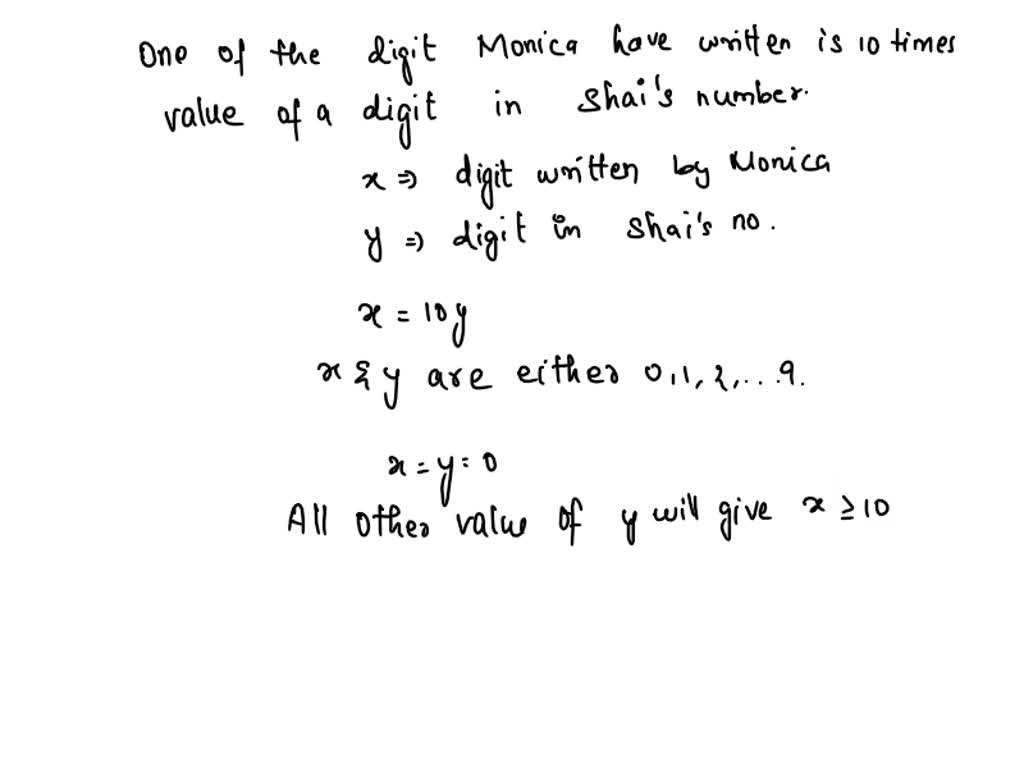 One of the digit Monica have written is 10 times
value of a digit in Shai's number.
x ⇒ digit written by Monica
y ⇒ digit in Shai's no.
x = 10y
x & y are either 0,1,2,...9.
x = y = 0
All other value of y will give x ≥ 10